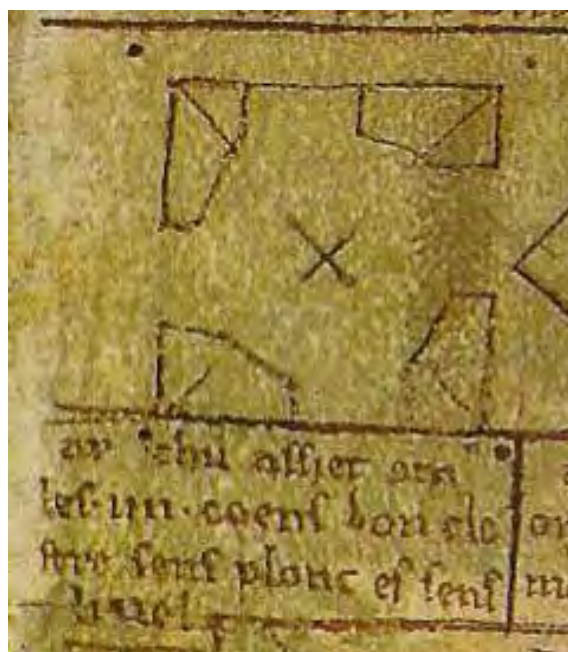 ar chu assiet om
les·iiii·coens don clo
stre sens plonc et sens
livel